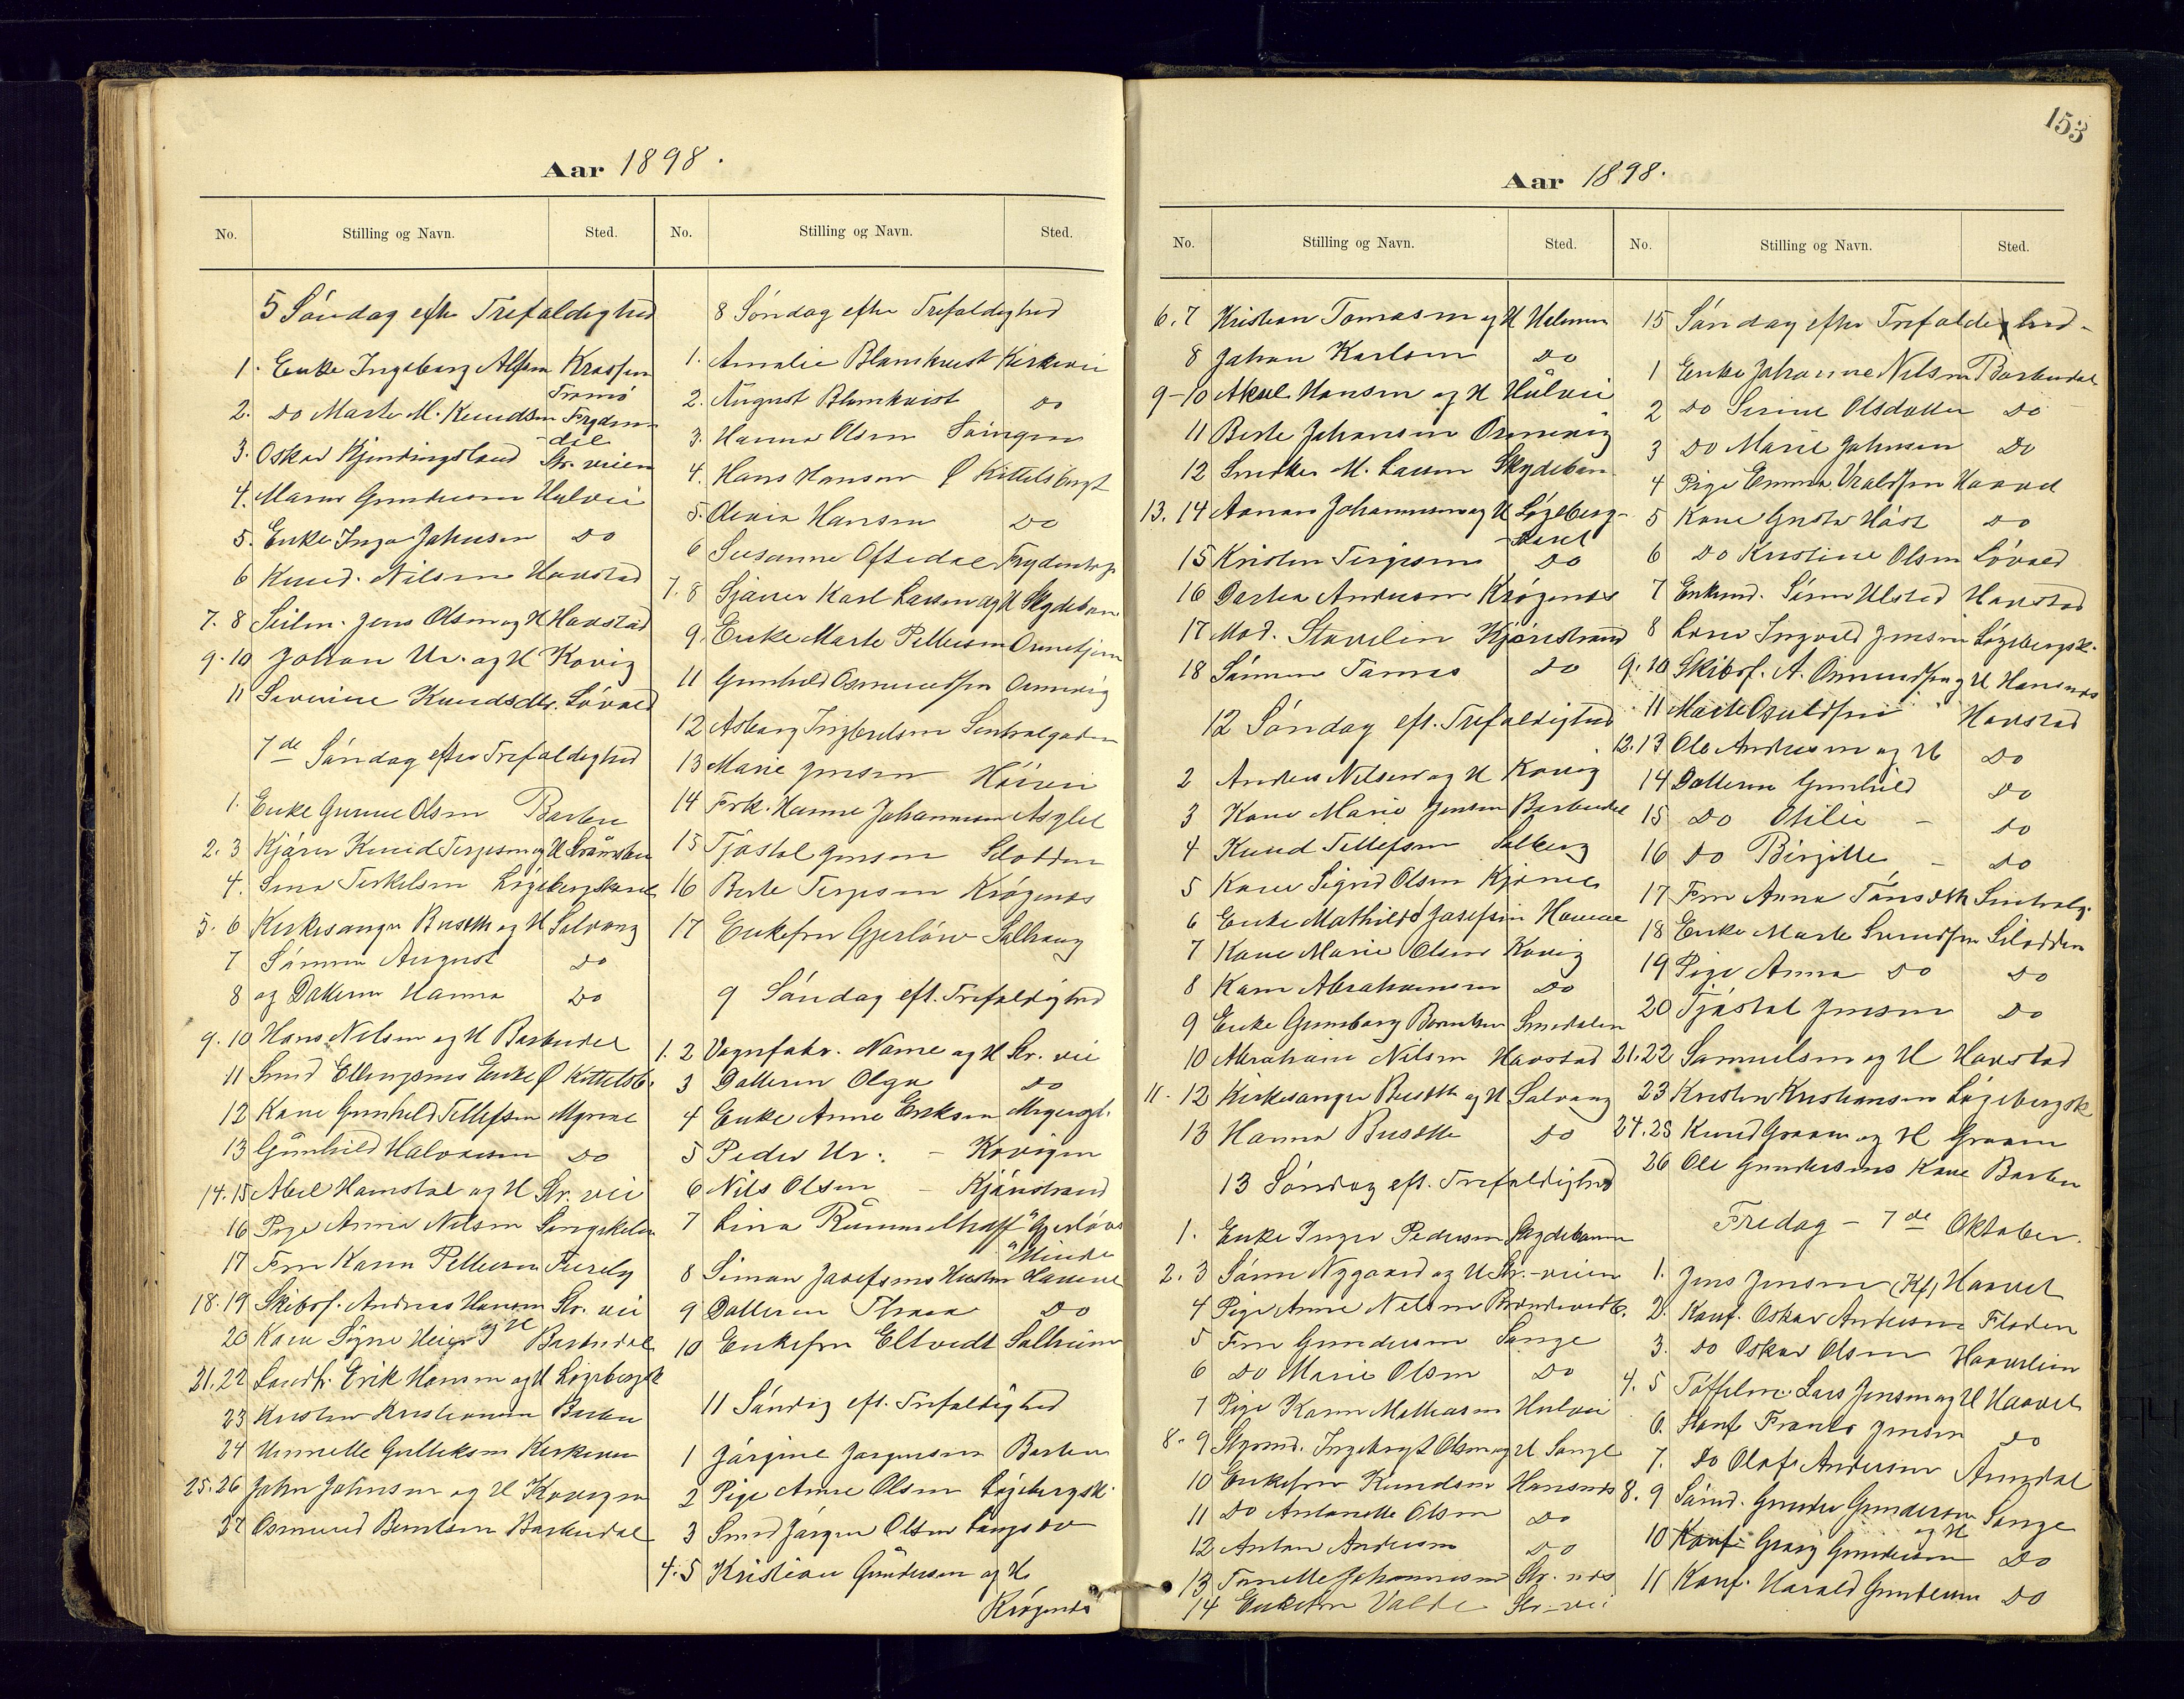 Aar 1898.
No. Stilling og Navn. Sted. No. Stilling og Navn. Sted.
5 Søndag efter Trefoldighed
1. Enke Ingeborg Alfsen
Tromø
2. Do Marte M. Knudsen
3. Oskar Kjendingsland Str. veien
4. Gundersen Hulvei
5. Enke Inga Johnsen Do
6 Knud Nilsen Havstad
7. 8 Seilm. Jens Olsen og H Havstad
9.10 Johan Ur. og H Kovig
11 Severine Knudsdtr. Løvold
7de Søndag efter Trefoldighed
1. Enke Gunne Olsen Barbu
2. 3 Kjører Knud Terjesen og H
4. Terkelsen Løgebergskaret
5. 6 Kirkesanger Buseth og H Solvang
7 Sønnen August Do
8 og Datteren Hanna Do
9.10 Hans Nilsen og H Barbudal
11 Smed Ellingsens Enke Ø Kittelsb.
12 Kone Gunhild Tellefsen Myrene
13 Gunhild Halvorsen Do
14.15 Abel Hamstal og H Str. vei
16 Pige Anna Nilsen
17 Fru Karen Pettersen Furely
18.19 Skibsf. Andreas Hansen og H Str. vei
20 Kone Signe Barbudal
21.22 Erik Hansen og H Løgebergsk
23 Kristen Kristiansen Barbu
24 Gulliksen Kirkeveien
25.26 John Johnsen og H Kovigen
27 Osmund Berntsen Barbudal
8 Søndag efter Trefoldighed
1. Amalie Blomkvist Kirkevei
2. August Blomkvist Do
3. Hanna Olsen
4. Hans Hansen Ø Kittelsbugt
5. Olevia Hansen Do
6 Susanne Oftedal
7. 8 Kjører Karl Larsen og H Skydeban
9. Enke Marte Pettersen
11 Gunhild Osmundsen Ormevig
12 Asborg Ingbretsen Sentralgaden
13 Marie Jensen Høivei
14 Frk. Hanne Johannesen Asylet
15 Tjøstol Jensen Slodden
16 Berte Terjesen Krøgenes
17 Enkefru Gjerløw Solhaug
9 Søndag eft. Trefoldighed
1. 2 Vognfabr. Næme og H Str. vei
3 Datteren Olga Do
4 Enke Anne Eriksen
5 Peder Ur. - Kovigen
6 Nils Olsen - Kjønstrand
7 Lina Rummelhoff "Gjerløws
Minde"
8 Simon Josefsens Hustru Havene
9 Datteren Thora Do
10 Enkefru Eltvedt Solheim
11 Søndag eft. Trefoldighed
1 Jørgine Jørgensen Barbu
2 Pige Anne Olsen Løgebergsk.
3 Smed Jørgen Olsen Langsæv
4.5 Kristian Gundersen og H
Krøgenes
153
Aar 1898.
No. Stilling og Navn. Sted. No. Stilling og Navn. Sted.
6. 7 Kristian Tomasen og H
8 Johan Karlsen Do
9-10 Aksel Hansen og H Hulvei
11 Berte Johansen Ormevig
12 M. Larsen Skydeban
13. 14 Johannesen og H Løgeberg-
skaret
15 Kristen Terjesen Do
16 Dortea Andersen Krøgenes
17 Mad. Kjønstrand
18 Sønnen Tomas Do
12 Søndag eft. Trefoldighed
2 Anders Nilsen og H Kovig
3 Kone Marie Jensen Barbudal
4 Knud Tellefsen Solberg
5 Kone Sigrid Olsen
6 Enke Mathilde Josefsen Havene
7 Kone Marie Olsen Kovig
8 Karen Abrahamsen Do
9 Enke Gunborg Berntsen Smedalen
10 Abraham Nilsen Havstad
11. 12 Kirkesanger Buseth og H Solvang
13 Hanna Buseth Do
13 Søndag eft. Trefoldighed
1. Enke Inger Pedersen Skydebanen
2. 3 Søren Nygaard og H Str.-veien
4 Pige Anne Nilsen
5 Fru Gundersen Songe
6 Do Marie Olsen Do
7 Pige Karen Mathiasen Hulvei
8. 9 Styrmd. Ingebregt Olsen og H Songe
10 Enkefru Knudsen Hansnes
11 Do Antonette Olsen Do
12 Anton Andersen Do
13 Tonette Johannesen Str. nes
14 Enkefru Str-vei
15 Søndag efter Trefoldighed-
1 Enke Johanne Nilsen Barbudal
2 Do Serine Olsdatter Do
3 Do Marie Johnsen Do
4 Pige Emma Haavet
5 Kone Høst Do
6 Do Kristine Olsen Løvold
7 Enkemd. Søren Ulsted Havstad
8 Ingvald Jensen Løgebergsk.
9.10 Skibsf. A. Osmundsen og H Hansnes
11 Marte Osuldsen Havstad
12.13 Ole Andersen og H Do
14 Datteren Gunhild Do
15 Do Otilie - Do
16 Do Birgitte - Do
17 Fru Anna Tønseth Sentralg.
18 Enke Marte Slodden
19 Pige Anna Do Do
20 Tjøstol Jensen Do
21.22 Samuelsen og H Havstad
23 Kristen Kristiansen Løgebergsk
24.25 Knud Graam og H Graam
26 Ole Gundersens Kone Barbu
Fredag - 7de Oktober.
1. Jens Jensen (Kf) Haavet
2. Konf. Oskar Andersen Floden
3. Do Oskar Olsen Haavelien
4. 5 Toffelm. Lars Jensen og H Haavet
6. Konf Frants Jensen Do
7. Do Olaf Andersen Amzdal
8. 9 Gunder Gundersen og H Songe
10 Konf. Georg Gundersen Do
11 Konf. Harald Gundersen Do